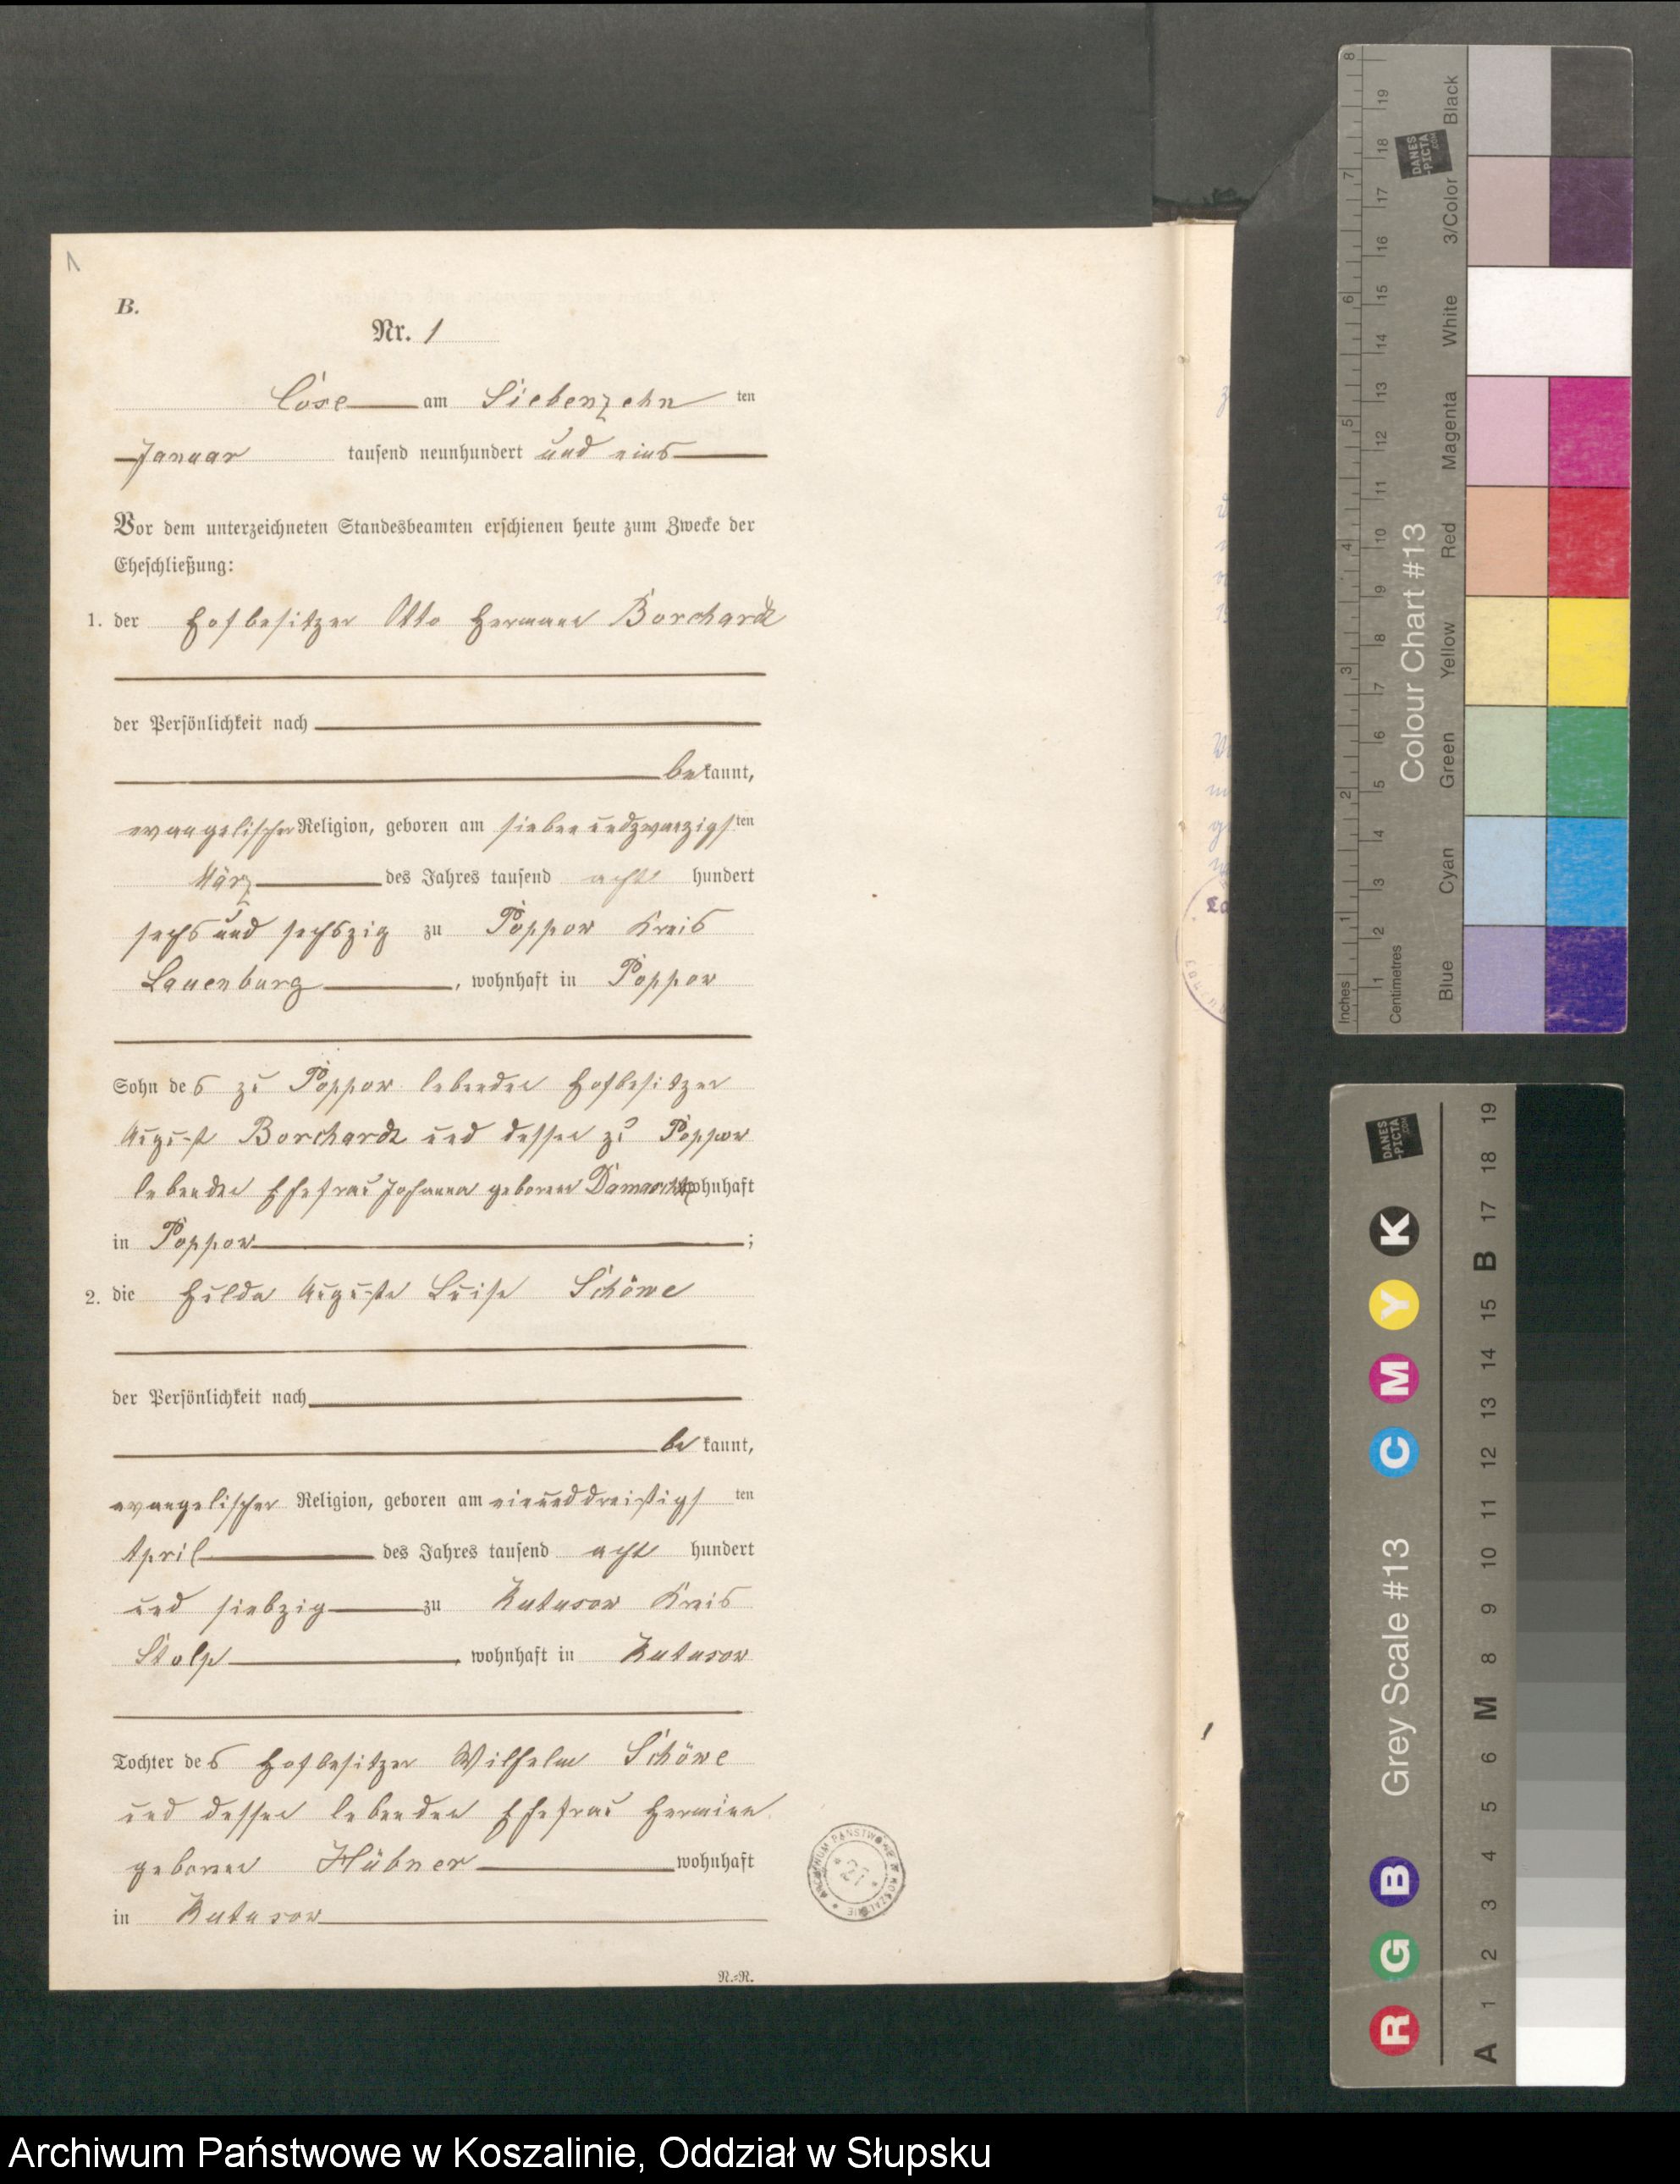 1
B.
Nr. 1
Cose am Siebenzehn ten
Januar tausend neunhundert und eins
Vor dem unterzeichneten Standesbeamten erschienen heute zum Zwecke der
Eheschließung:
1. der Hofbesitzer Otto Hermann Borchardt
der Persönlichkeit nach
bekannt,
evangelischer Religion, geboren am siebenundzwanzigsten
März des Jahres tausend acht hundert
sechs und sechszig zu Poppow Kreis
Lauenburg, wohnhaft in Poppow
Sohn des zu Poppow lebenden Hofbesitzer
August Borchardt und dessen zu Poppow
lebenden Ehefrau Johanna geborene wohnhaft
in Poppow;
2. die Hulda Auguste Luise Schöwe
der Persönlichkeit nach
bekannt,
evangelischer Religion, geboren am einunddreißigsten
April des Jahres tausend acht hundert
und siebzig zu Rutusow Kreis
Stolp, wohnhaft in Rutusow
Tochter des Hofbesitzer Wilhelm Schöwe
und dessen lebenden Ehefrau Hermine
geborene Hübner wohnhaft
in Rutusow
N.=N.
ARCHIWUM PAŃSTWOWE W KOSZALINIE
27
Inches
Centimetres
Colour Chart #13
Blue Cyan Green Yellow Red Magenta White 3/Color Black
DANES-PICTA.COM
1 2 3 4 5 6 7 8
1 2 3 4 5 6 7 8 9 10 11 12 13 14 15 16 17 18 19
DANES-PICTA.COM
R G B Grey Scale #13 C M Y K
A 1 2 3 4 5 6 M 8 9 10 11 12 13 14 15 B 17 18 19
Archiwum Państwowe w Koszalinie, Oddział w Słupsku